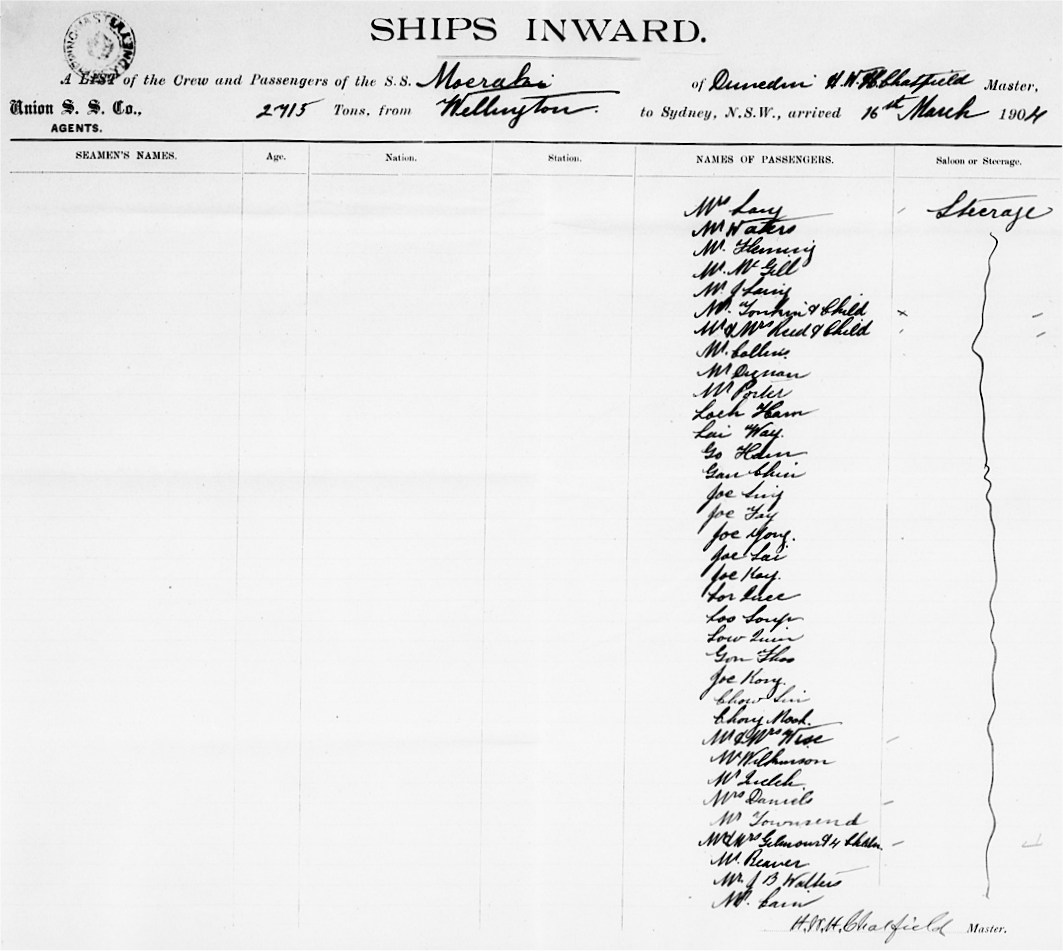 SHIPS INWARD.
A LIST of the Crew and Passengers of the S.S. Moeraki of Dunedin H.W.H. Chatfield Master,
Union S. S. Co., 2715 Tons, from Wellington. to Sydney, N.S.W., arrived 16th March 1904
AGENTS.
SEAMEN'S NAMES. Age. Nation. Station. NAMES OF PASSENGERS. Saloon or Steerage.
Mrs Lang Steerage
Mr Waters
Mr. Fleming
Mr. McGill
Mr. J Laing
Tonkin & Child
Mr & Mrs Reed & Child
Mr. Collins
Mr Dignan
Mr Porter
Loch Ham
Lai Way.
Go Ham
Gan Chin
Joe Sing
Joe Fay
Joe Yong.
Joe Lai
Joe Kay.
Lor Quee
Loo Soup
Low Quin
Gon Thoo
Joe Kong.
Chow Sin
Chong Mook.
Mr & Mrs Wise
Mr Wilkinson
Mr Quelch
Mrs Daniels
Mr Townsend
Mr & Mrs Gilmour & 4 Children
Mr. Beaver
Mr. J B Walters
Mr. Cain
H.W.H. Chatfield Master.